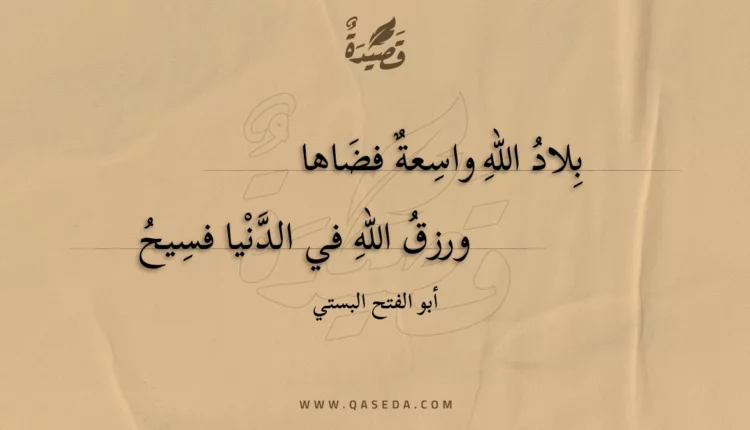 قَصِيدَةٌ
بِلادُ اللهِ واسِعةٌ فضَاها
ورزقُ اللهِ في الدَّنْيا فسِيحُ
أبو الفتح البستي
WWW.QASEDA.COM